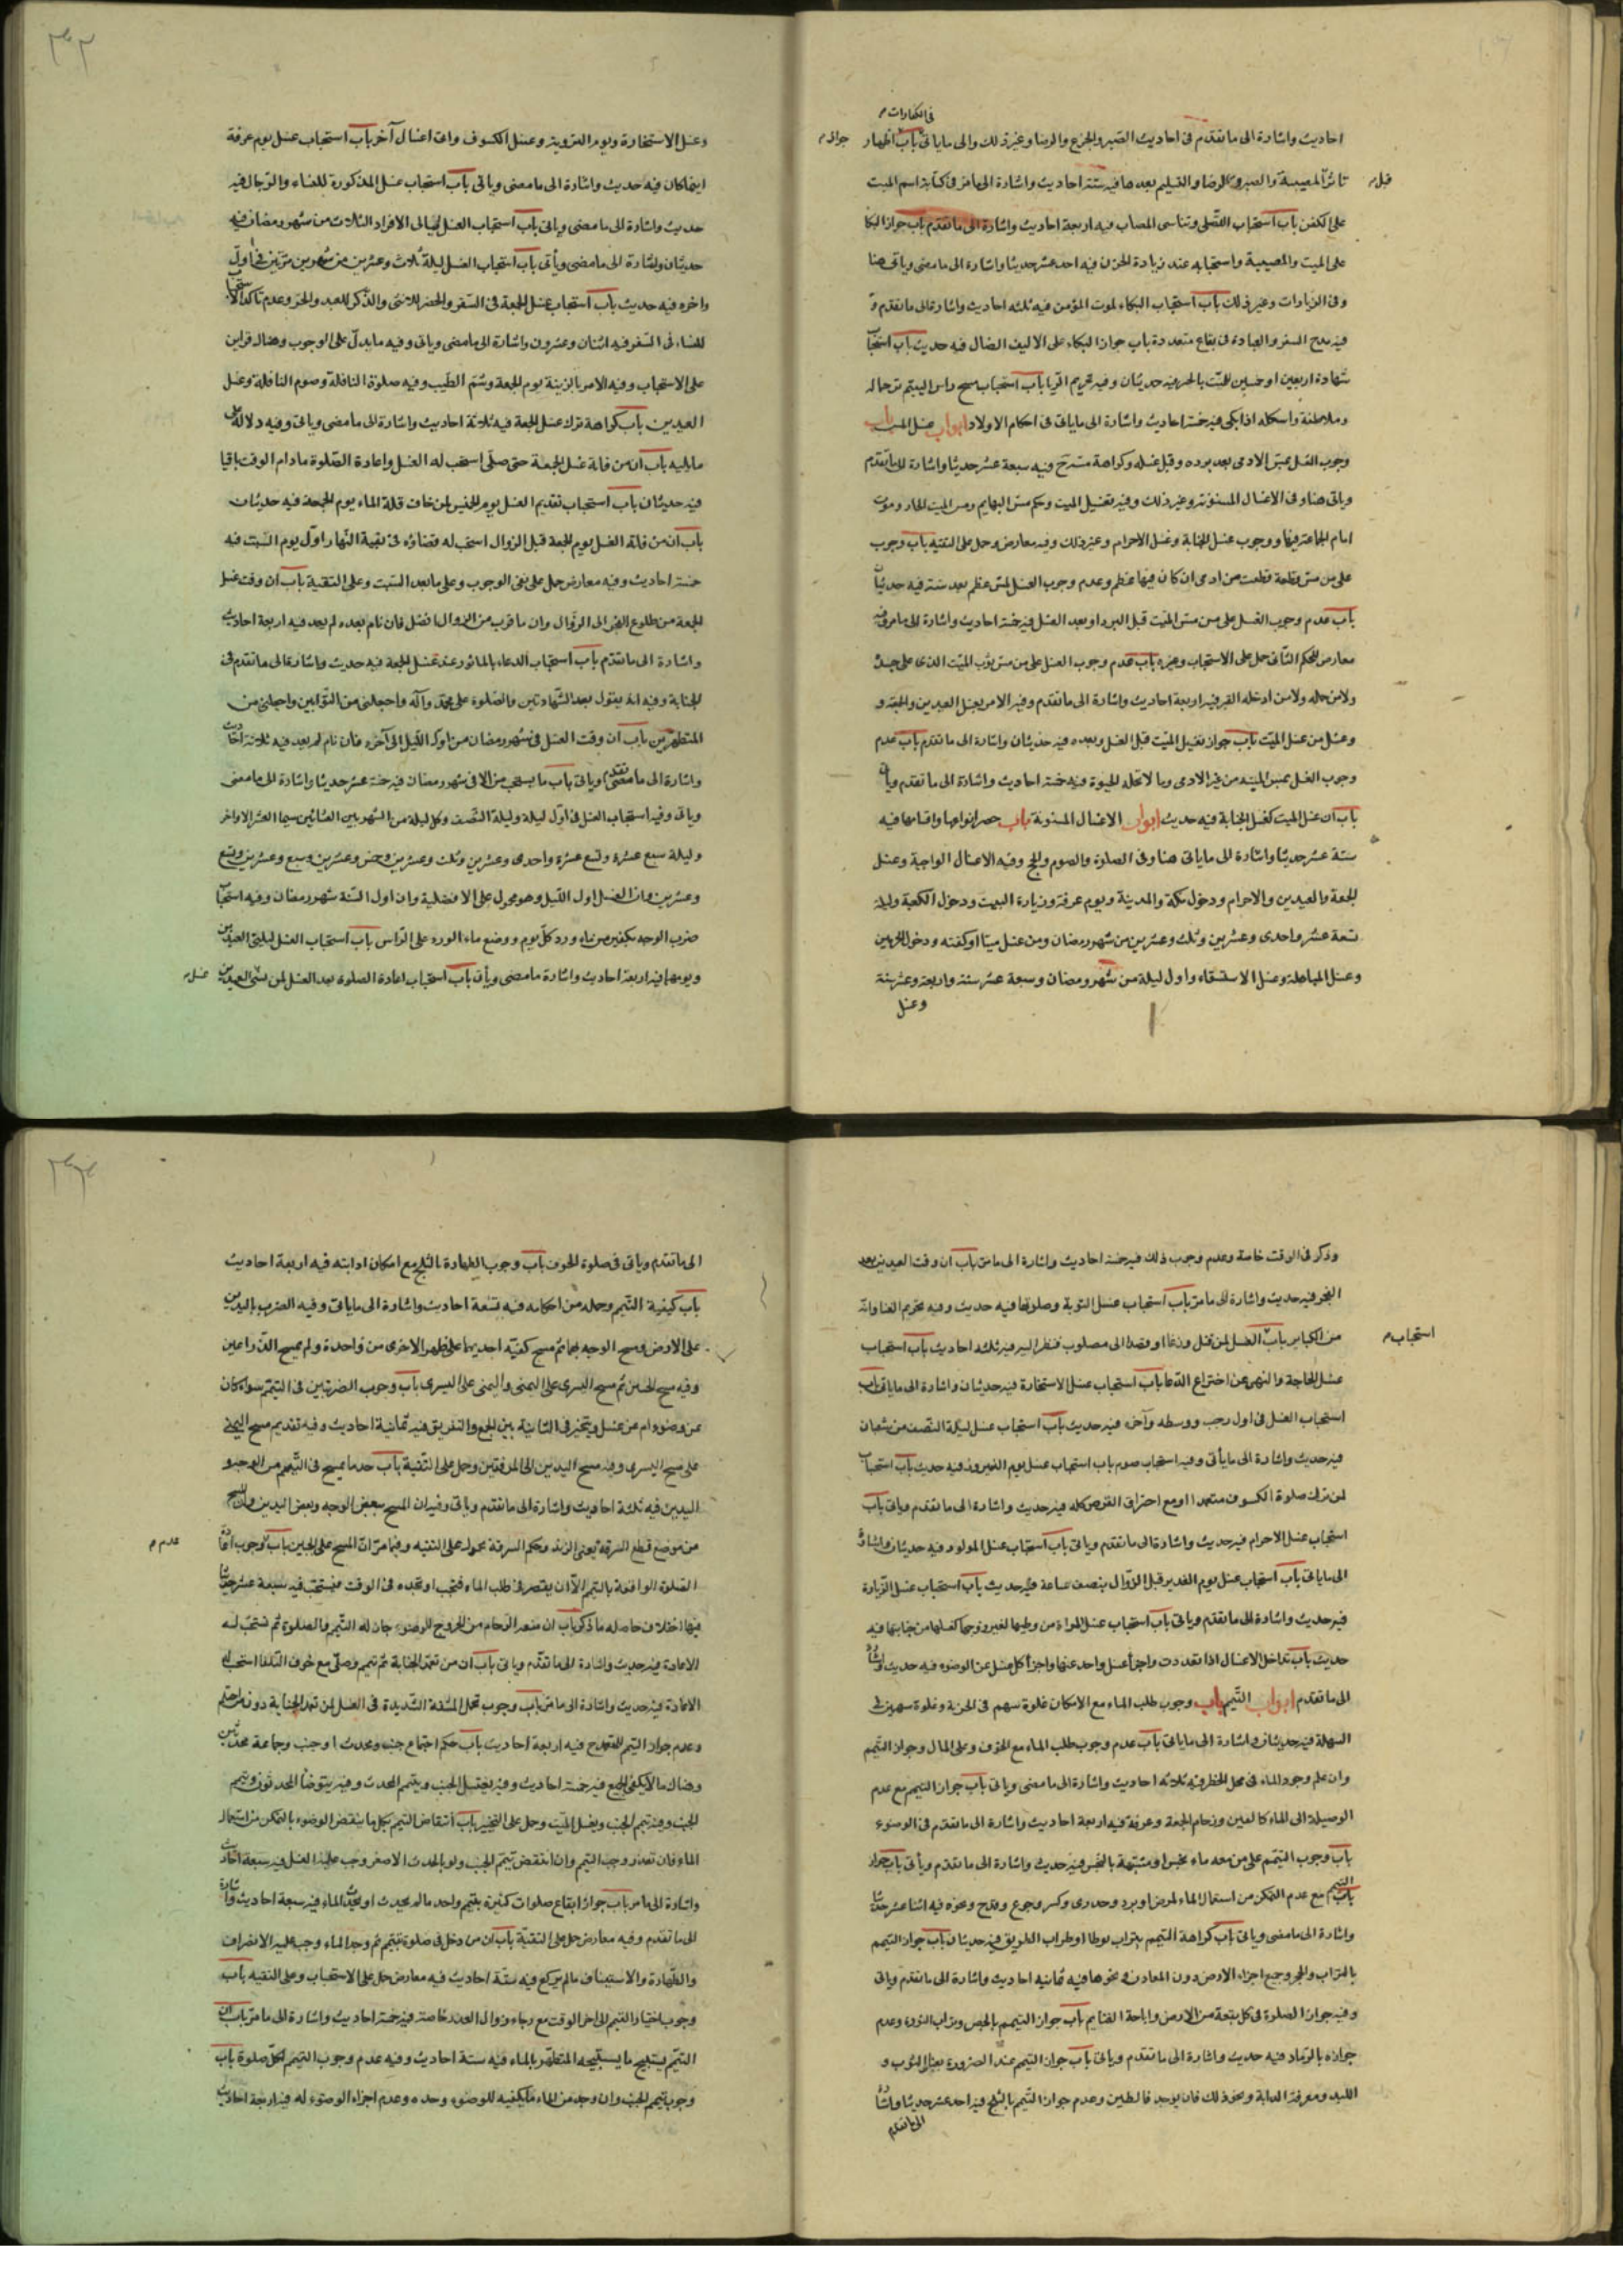 في الكفارات م
احاديث واشارة الى ما تقدم في احاديث الصبر والجزع والرضا وغير ذلك والى ما ياتى باب اظهار
جواز م
تاثر المصيبة والصبر والرضا والتسليم بعدها فيه ستة احاديث واشارة الى ما مر في كتابة اسم الميت
قبل م
على الكفن باب استحباب التسلى وتناسى المصاب فيه اربعة احاديث واشارة الى ما تقدم باب جواز البكا
على الميت والمصيبة واستحبابه عند زيادة الحزن فيه احد عشر حديثا واشارة الى ما مضى وياتى هنا
وفى الزيارات وغير ذلك باب استحباب البكاء لموت المؤمن فيه ثلثه احاديث واشارة الى ما تقدم و
فيه مدح السفر والعبادة فى بقاع متعددة باب جواز البكاء على الاليف الضال فيه حديث باب استحباب
شهادة اربعين او خمسين للميت بالخير فيه حديثان وفيه تحريم الريا باب استحباب مسح راس اليتيم ترحما له
وملاطفته واسكاته اذا بكى فيه خمسة احاديث واشارة الى ما ياتى فى احكام الاولاد ابواب غسل المس باب
وجوب الغسل بمس الادمى بعد برده وقبل غسله وكراهة فيه سبعة عشر حديثا واشارة الى ما تقدم
وياتى هنا وفى الاغسال المسنونة وغير ذلك وفيه تغسيل الميت وحكم مس البهايم ومس الميت الحار وموت
امام الجماعة فيها ووجوب غسل الجنابة وغسل الاحرام وغير ذلك وفيه معارض وحمل على التقية باب وجوب
على من مس قطعة قطعت من ادمى ان كان فيها عظم وعدم وجوب الغسل لمس عظم بعد سنة فيه حديثان
باب عدم وجوب الغسل على من مس الميت قبل البرد او بعد الغسل فيه خمسة احاديث واشارة الى ما مر وفيه
معارض للحكم الثانى حمل على الاستحباب وغيره باب عدم وجوب الغسل على من مس ثوب الميت الذى على جلده
ولا من حمله ولا من ادخله القبر فيه اربعة احاديث واشارة الى ما تقدم وفيه الامر بغسل العيدين والجمعة و
وغسل من غسل الميت باب جواز تقبيل الميت قبل الغسل وبعده فيه حديثان واشارة الى ما تقدم باب عدم
وجوب الغسل بمس الميتة من غير الادمى وما لا تحله الحيوة فيه خمسة احاديث واشارة الى ما تقدم وياتى
باب ان غسل الميت كغسل الجنابة فيه حديث ابواب الاغسال المسنونة باب حصر انواعها واقسامها فيه
ستة عشر حديثا واشارة الى ما ياتى هنا وفى الصلوة والصوم والحج وفيه الاغسال الواجبة وغسل
الجمعة والعيدين والاحرام ودخول مكة والمدينة ويوم عرفة وزيارة البيت ودخول الكعبة وليلة
تسعة عشر واحدى وعشرين وثلث وعشرين من شهر رمضان ومن غسل ميتا او كفنه ودخول الحرمين
وغسل المباهلة وغسل الاستسقاء واول ليلة من شهر رمضان وسبعة عشر منه واربعة وعشر منه
وغسل
وغسل الاستخارة ويوم التروية وغسل الكسوف واما اغسال آخر باب استحباب غسل يوم عرفة
اينما كان فيه حديث واشارة الى ما مضى وياتى باب استحباب غسل المذكورة للنساء والرجال فيه
حديث واشارة الى ما مضى وياتى باب استحباب الغسل لليالى الافراد الثلاث من شهر رمضان فيه
حديثان واشارة الى ما مضى ويأتى باب استحباب الغسل ليلة ثلاث وعشرين من شهر رمضان مرتين فى اول
واخره فيه حديث باب استحباب غسل الجمعة فى السفر والحضر للانثى والذكر للعبد والحر وعدم تاكد الاستحباب
للنساء فى السفر فيه اثنان وعشرون واشارة الى ما مضى وياتى وفيه ما يدل على الوجوب وهناك قراين
على الاستحباب وفيه الامر بالزينة يوم الجمعة وشم الطيب وفيه صلوة النافلة وصوم النافلة وغسل
العيدين باب كراهة ترك غسل الجمعة فيه ثلاثة احاديث واشارة الى ما مضى وياتى وفيه دلالة على
ما يليه باب ان من فاته غسل الجمعة حتى صلى استحب له الغسل واعادة الصلوة ما دام الوقت باقيا
فيه حديثان باب استحباب تقديم الغسل يوم الخميس لمن خاف قلة الماء يوم الجمعة فيه حديثان
باب ان من فاته الغسل يوم الجمعة قبل الزوال استحب له قضاؤه فى بقية النهار اول يوم السبت فيه
خمسة احاديث وفيه معارض حمل على نفى الوجوب وعلى ما بعد السبت وعلى التقية باب ان وقت غسل
الجمعة من طلوع الفجر الى الزوال وان ما قرب من الزوال افضل فان نام بعده لم يعد فيه اربعة احاديث
واشارة الى ما تقدم باب استحباب الدعاء بالماثور عند غسل الجمعة فيه حديث واشارة الى ما تقدم فى
الجنابة وفيه انه يقول بعد الشهادتين والصلوة على محمد وآله واجعلنى من التوابين واجعلنى من
المتطهرين باب ان وقت الغسل فى شهر رمضان من اول الليل الى آخره فان نام لم يعد فيه ثلاثة احاديث
واشارة الى ما مضى تقدم وياتى باب ما يستحب من الاغسال فى شهر رمضان فيه خمسة عشر حديثا واشارة الى ما مضى
وياتى وفيه استحباب الغسل فى اول ليلة وليلة النصف وكل ليلة من الشهر بين العشائين سيما العشر الاواخر
وليلة سبع عشرة وتسع عشرة واحدى وعشرين وثلث وعشرين وخمس وعشرين وسبع وعشرين وتسع
وعشرين وان الغسل اول الليل وهو محمول على الافضلية وان اول السنة شهر رمضان وفيه استحباب
ضرب الوجه بكف من ماء ورد كل يوم ووضع ماء الورد على الراس باب استحباب الغسل ليلتى العيدين
ويومهما فيه اربعة احاديث واشارة ما مضى ويأتى باب استحباب اعادة الصلوة بعد الغسل لمن نسى العيدين
غسل م
وذكر فى الوقت خاصة وعدم وجوب ذلك فيه خمسة احاديث واشارة الى ما مر باب ان وقت العيدين بعد
الفجر فيه حديث واشارة الى ما مر باب استحباب غسل التوبة وصلوتها فيه حديث وفيه تحريم الغنا وانه
من الكباير باب الغسل لمن قتل وزغا او قصد الى مصلوب فنظر اليه فيه ثلثة احاديث باب استحباب
استحباب م
غسل الحاجة والنهى عن اختراع الدعا باب استحباب غسل الاستخارة فيه حديثان واشارة الى ما ياتى باب
استحباب الغسل فى اول رجب ووسطه وآخره فيه حديث باب استحباب غسل ليلة النصف من شعبان
فيه حديث واشارة الى ما يأتى وفيه استحباب صوم باب استحباب غسل يوم النيروز فيه حديث باب استحباب
لمن ترك صلوة الكسوف متعمدا او مع احتراق القرص كله فيه حديث واشارة الى ما تقدم وياتى باب
استحباب غسل الاحرام فيه حديث واشارة الى ما تقدم وياتى باب استحباب غسل المولود فيه حديثان واشارة
الى ما ياتى باب استحباب غسل يوم الغدير قبل الزوال بنصف ساعة فيه حديث باب استحباب غسل الزيارة
فيه حديث واشارة الى ما تقدم وياتى باب استحباب غسل المراة من طيبها لغير زوجها كغسلها من جنابتها فيه
حديث باب تداخل الاغسال اذا تعددت واجزأ غسل واحد عنها واجزأ كل غسل عن الوضوء فيه حديث واشارة
الى ما تقدم ابواب التيمم باب وجوب طلب الماء مع الامكان غلوة سهم فى الحزنة وغلوة سهمين فى
السهلة فيه حديثان واشارة الى ما ياتى باب عدم وجوب طلب الماء مع الخوف وعلى المال وجواز التيمم
وان علم وجود الماء فى محل الخطر فيه ثلاثه احاديث واشارة الى ما مضى وياتى باب جواز التيمم مع عدم
الوصيلة الى الماء كالعين وزحام الجمعة وعرفة فيه اربعة احاديث واشارة الى ما تقدم فى الوضوء
باب وجوب التيمم على من معه ماء نجس او مشتبهة بالنجس فيه حديث واشارة الى ما تقدم ويأتى باب جواز
التيمم مع عدم التمكن من استعمال الماء لمرض او برد وجدرى وكسر وجوع وقدح ونحوه فيه اثنا عشر حديثا
واشارة الى ما مضى وياتى باب كراهة التيمم بتراب يوطا او طراب الطريق فيه حديثان باب جواز التيمم
بالتراب والحجر وجميع اجزاء الارض دون المعادن ونحوها فيه ثمانيه احاديث واشارة الى ما تقدم وياتى
وفيه جواز الصلوة فى كل بقعة من الارض واباحة الغنايم باب جواز التيمم بالجص وتراب النورة وعدم
جوازه بالرماد فيه حديث واشارة الى ما تقدم وياتى باب جواز التيمم عند الضرورة بغبار الثوب و
اللبد ومعرفة الدابة ونحو ذلك فان لم يوجد فالطين وعدم جواز التيمم بالثلج فيه احد عشر حديثا واشارة
الى ما تقدم
الى ما تقدم وياتى فى صلوة الخوف باب وجوب الطهارة بالثلج مع امكان اذابته فيه اربعة احاديث
باب كيفية التيمم وجمله من احكامه فيه تسعة احاديث واشارة الى ما ياتى وفيه الضرب باليدين
على الارض ومسح الوجه بهما ثم مسح كفيه احديهما على ظهر الاخرى من واحدة ولم يمسح الذراعين
وفيه مسح الجبين ثم مسح اليسرى على اليمنى واليمنى على اليسرى باب وجوب الضربتين فى التيمم سواء كان
عن وضوء ام عن غسل ويتخير فى الثانية بين الجمع والتفريق فيه ثمانية احاديث وفيه تقديم مسح اليمنى
على مسح اليسرى وفيه مسح اليدين الى المرفقين وحمل على التقية باب حد ما يمسح فى التيمم من الوجه و
اليدين فيه ثلثة احاديث واشارة الى ما تقدم وياتى وفيه ان المسح ببعض الوجه وبعض اليدين وان المسح
من موضع قطع السرقة يعنى الزند وحكم السرقة محمول على التقيه وفيما مر ان المسح على الجبين باب وجوب اعادة
عدم م
الصلوة الواقعة بالتيمم الا ان يقصر فى طلب الماء فتجب او تجده فى الوقت فيستحب فيه سبعة عشر حديثا
فيها اختلاف حاصله ما ذكر باب ان من منعه الزحام من الخروج للوضوء جاز له التيمم والصلوة ثم تستحب له
الاعادة فيه حديث واشارة الى ما تقدم وياتى باب ان من تعمد الجنابة ثم تيمم وصلى مع خوف التلف استحب له
الاعادة فيه حديث واشارة الى ما مر باب وجوب تحمل المشقة الشديدة فى الغسل لمن تعمد الجنابة دون من احتلم
وعدم جواز التيمم للمتعمد ح فيه اربعة احاديث باب حكم اجتماع جنب ومحدث او جنب وجماعة محدثين
وهناك ما لا يكفى الجميع فيه خمسة احاديث وفيه يغتسل الجنب ويتيمم المحدث وفيه يتوضأ المحدثون وتيمم
الجنب وفيه تيمم الجنب ويغسل الميت وحمل على التخيير باب انتقاض التيمم بكل ما ينقض الوضوء بالتمكن من استعمال
الماء فان تعذر وجب التيمم وان انتقض تيمم الجنب ولو بالحدث الاصغر وجب عليه الغسل فيه سبعة احاديث
واشارة الى ما مر باب جواز ايقاع صلوات كثيرة بتيمم واحد ما لم يحدث او يجد الماء فيه سبعة احاديث واشارة
الى ما تقدم وفيه معارض حمل على التقية باب ان من دخل فى صلوة بتيمم ثم وجد الماء وجب عليه الانصراف
والطهارة والاستيناف ما لم يركع فيه ستة احاديث فيه معارض حمل على الاستحباب وعلى التقيه باب
وجوب اختيار التيمم الى اخر الوقت مع رجاء زوال العذر خاصة فيه خمسة احاديث واشارة الى ما مر باب ان
التيمم يستبيح ما يستبيحه المتطهر بالماء فيه ستة احاديث وفيه عدم وجوب التيمم لكل صلوة باب
وجوب تيمم الجنب وان وجد من الماء ما يكفيه للوضوء وحده وعدم اجزاء الوضوء له فيه اربعة احاديث